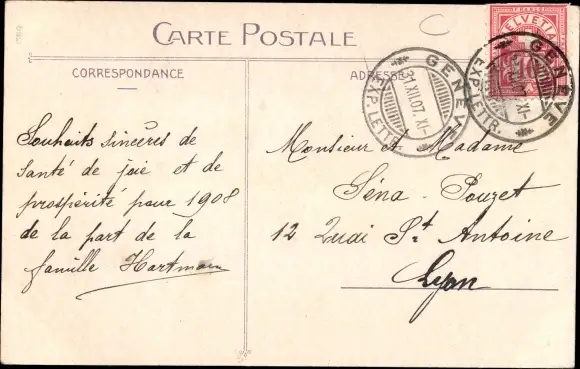 CARTE POSTALE
CORRESPONDANCE
Souhaits sincères de
santé de joie et de
prospérité pour 1908
de la part de la
famille Hartmann
ADRESSE
HELVETIA
FRANCO
GENÈVE
31.XII.07.XI-
EXP. LETTR.
GENÈVE
XI-
EXP. LETTR.
Monsieur et Madame
Séna-Pouzet
12 Quai St. Antoine
Lyon